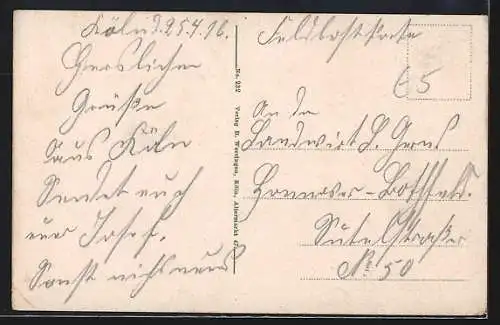 Köln d. 25.4.16.
Herzlichen
Grüße
aus Köln
Sendet euch
euer Josef.
Sonst nichts neues
No. 232 Verlag H. Worringen, Köln, Altermarkt
Feldpostkarte
65
An den
Landwirt H.
Hannover-Bothfeld.
Sutelstraße
No. 50